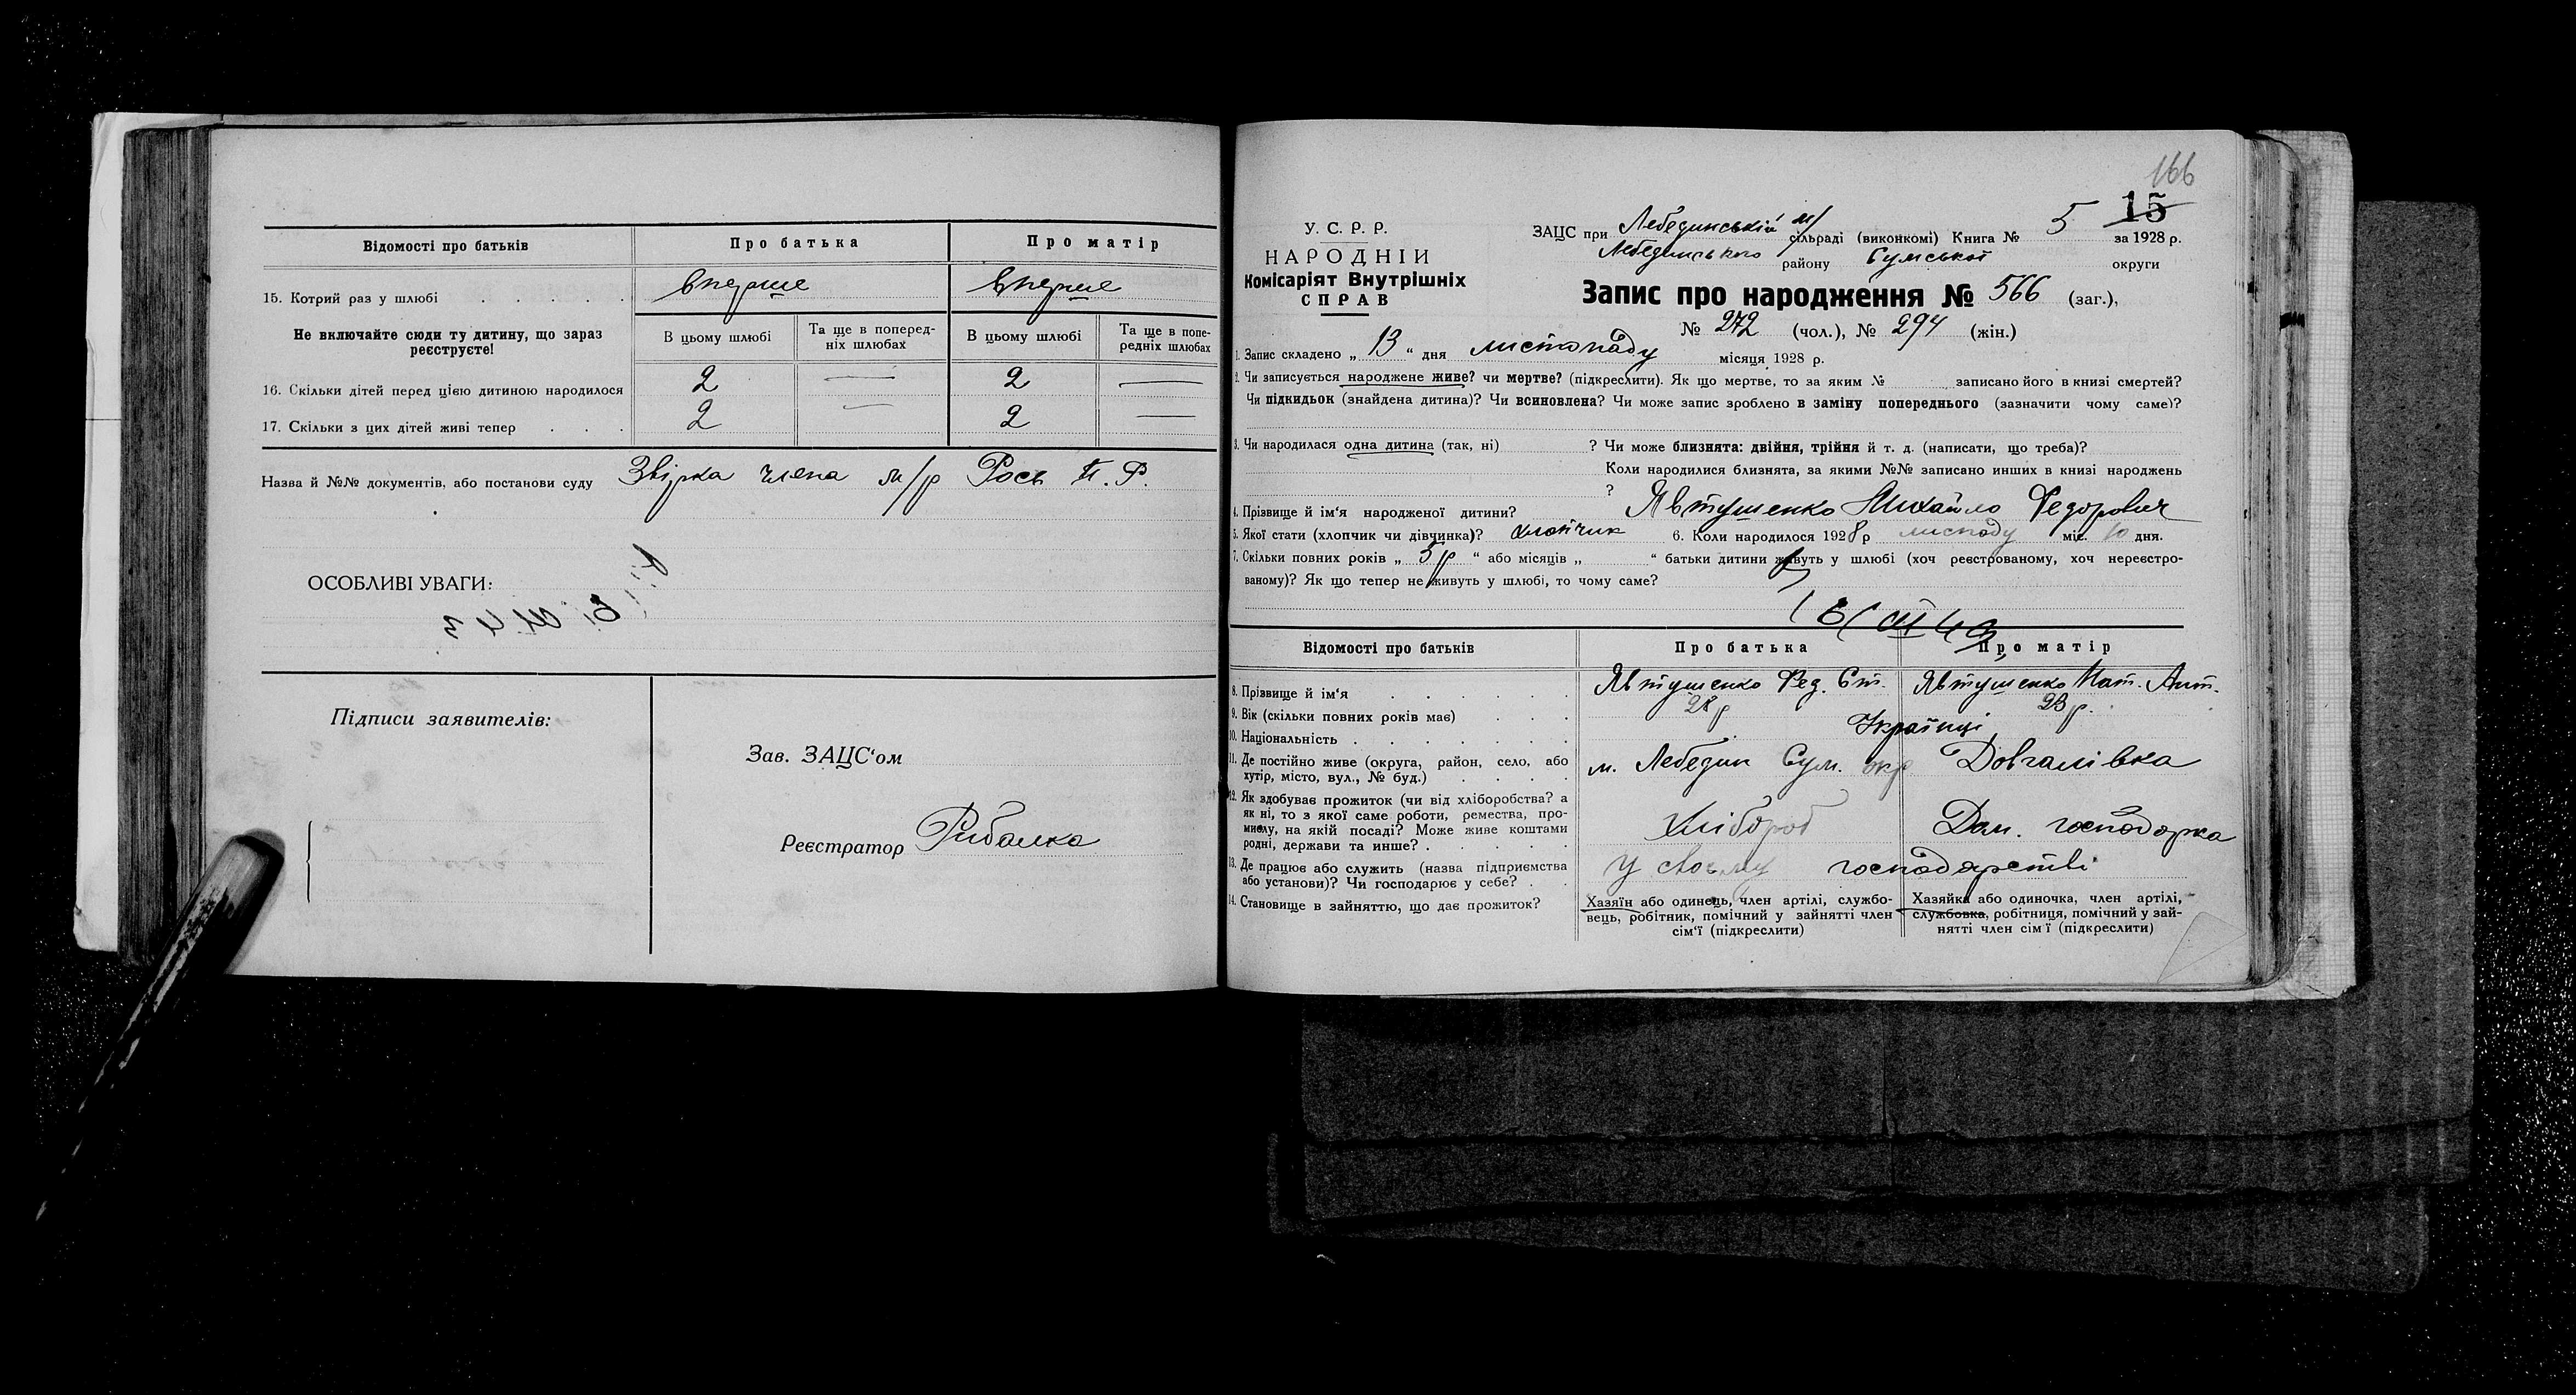 Відомості про батьків
Про батька
Про матір
15. Котрий раз у шлюбі . . . . .
вперше
вперше
Не включайте сюди ту дитину, що зараз
реєструєте!
В цьому шлюбі
Та ще в поперед-
ніх шлюбах
В цьому шлюбі
Та ще в попе-
редніх шлюбах
16. Скільки дітей перед цією дитиною народилося
2 — 2 —
17. Скільки з цих дітей живі тепер . . .
2 — 2 —
Назва й №№ документів, або постанови суду Звірка члена м/р Рось П. Р.
ОСОБЛИВІ УВАГИ:
Підписи заявителів:
Зав. ЗАЦС'ом
Реєстратор Рибалка
166
15
У. С. Р. Р.
НАРОДНІЙ
Комісаріят Внутрішніх
СПРАВ
ЗАЦС при Лебединській м/ сільраді (виконкомі) Книга № 5 за 1928 р.
Лебединського району Сумської округи
Запис про народження № 566 (заг.),
№ 272 (чол.), № 294 (жін.)
1. Запис складено „ 13 “ дня листопаду місяця 1928 р.
2. Чи записується народжене живе? чи мертве? (підкреслити). Як що мертве, то за яким № записано його в книзі смертей?
Чи підкидьок (знайдена дитина)? Чи всиновлена? Чи може запис зроблено в заміну попереднього (зазначити чому саме)?
3. Чи народилася одна дитина (так, ні) ? Чи може близнята: двійня, трійня й т. д. (написати, що треба)?
Коли народилися близнята, за якими №№ записано инших в книзі народжень
?
4. Прізвище й ім'я народженої дитини? Явтушенко Михайло Федорович
5. Якої стати (хлопчик чи дівчинка)? хлопчик 6. Коли народилося 1928 р листопаду міс. 10 дня.
7. Скільки повних років „ 5 р “ або місяців „ “ батьки дитини живуть у шлюбі (хоч реєстрованому, хоч нереєстро-
ваному)? Як що тепер не живуть у шлюбі, то чому саме?
Відомості про батьків
Про батька
Про матір
8. Прізвище й ім'я . . . . . .
Явтушенко Фед. Ст.
Явтушенко Нат. Ант.
9. Вік (скільки повних років має) . . .
28 р
23 р.
10. Національність . . . . . . .
Українці
11. Де постійно живе (округа, район, село, або
хутір, місто, вул., № буд.) . . . .
м. Лебедин Сум. окр Довгалівка
12. Як здобуває прожиток (чи від хліборобства? а
як ні, то з якої саме роботи, ремества, про-
мислу, на якій посаді? Може живе коштами
родні, держави та инше? . . . . .
Хлібороб
Дом. господорка
13. Де працює або служить (назва підприємства
або установи)? Чи господарює у себе? . .
У своєму господарстві
14. Становище в зайняттю, що дає прожиток?
Хазяїн або одинець, член артілі, службо-
вець, робітник, помічний у зайнятті член
сім'ї (підкреслити)
Хазяйка або одиночка, член артілі,
службовка, робітниця, помічний у зай-
нятті член сім'ї (підкреслити)